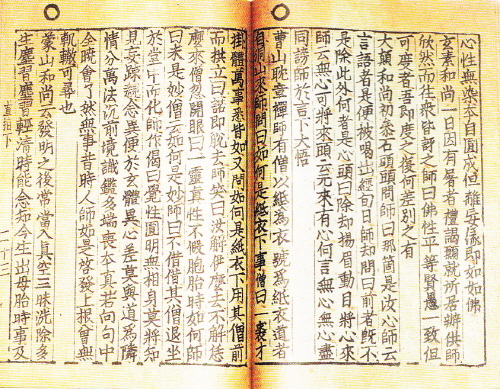 心性無染本自圓成但離妄緣即如如佛
玄素和尚一日因有屠者禮謁願就所居辦供師
欣然而往衆皆訝之師曰佛性平等賢愚一致但
可度者吾即度之復何差別之有
大顚和尚初叅石頭頭問師曰那箇是汝心師云
言語者是便被喝出經旬日師却問曰前者旣不
是除此外何者是心頭曰除却揚眉動目將心來
師云無心可將來頭云元來有心何言無心無心盡
同謗師於言下大悟
曹山耽章禪師有僧以紙爲衣號爲紙衣道者
自洞山來師問曰如何是紙衣下事僧曰一裘才
掛體萬事悉皆如又問如何是紙衣下用其僧前
而拱立曰諾即脫去師笑曰汝解伊麽去不解恁
麽來僧忽開眼曰一靈眞性不假胞胎時如何師
曰未是妙僧云如何是妙師曰不借借其僧退坐
於堂中而化師作偈曰覺性圓明無相身莫將知
見妄踈親念異便於玄體異心差莫與道爲隣
情分萬法沉前境識鑑多端喪本眞若向句中
全曉會了然無事昔時人師如是啓發上根曾無
軌轍可尋也
蒙山和尚云發明之後常當入眞空三昧洗除多
生塵習塵習輕清時能念知今生出母胎時事及
直指下　二十三